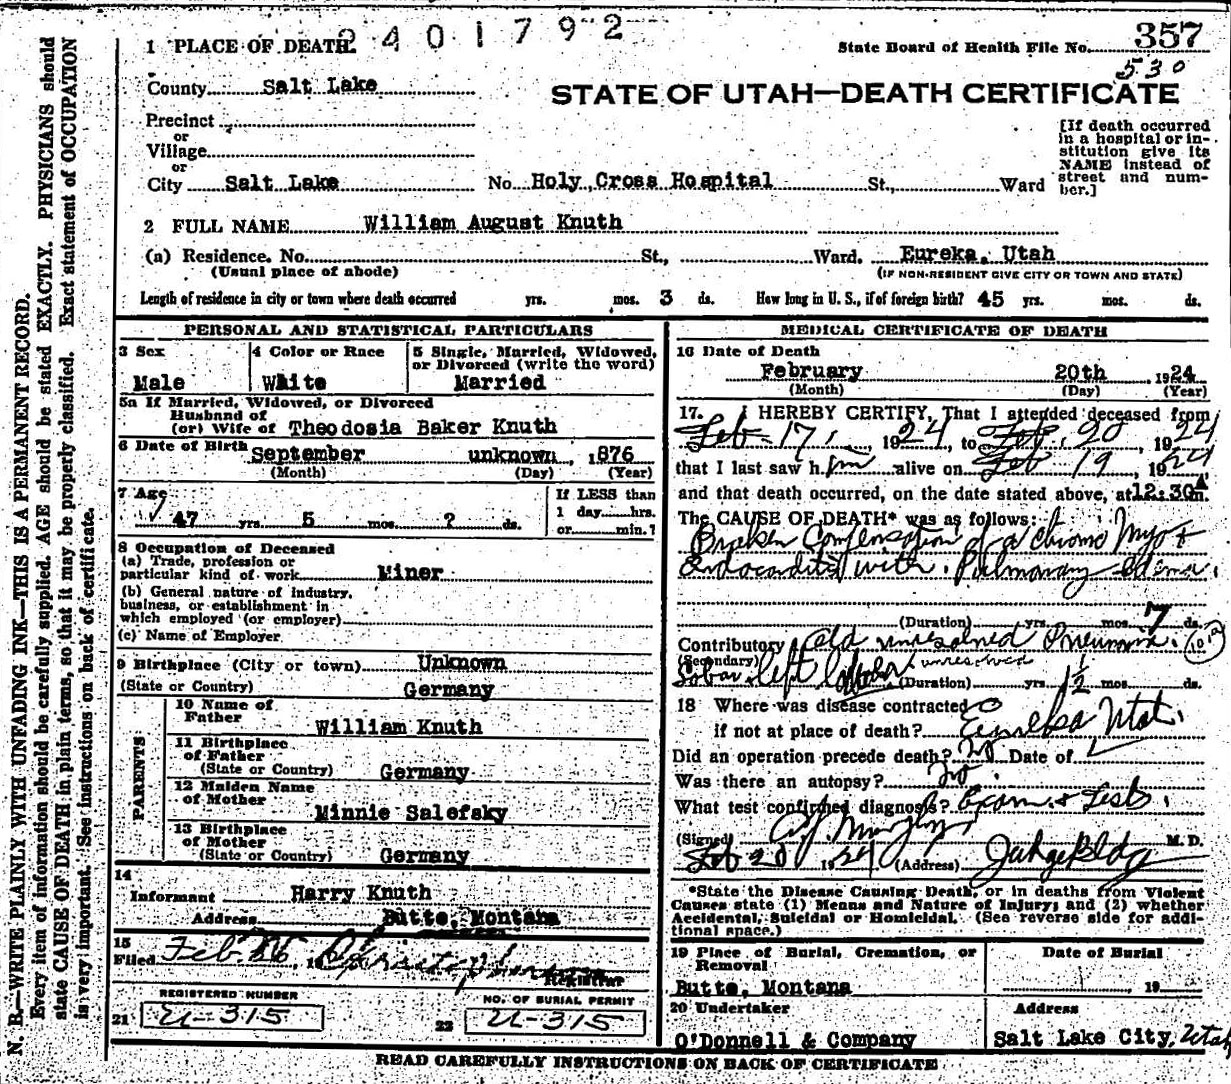 2401792
1 PLACE OF DEATH
State Board of Health File No. 357
530
County Salt Lake
STATE OF UTAH—DEATH CERTIFICATE
Precinct
or
Village
or
City Salt Lake No. Holy Cross Hospital St., Ward
[If death occurred
in a hospital or in-
stitution give its
NAME instead of
street and num-
ber.]
2 FULL NAME William August Knuth
(a) Residence. No. St., Ward. Eureka, Utah
(Usual place of abode) (IF NON-RESIDENT GIVE CITY OR TOWN AND STATE)
Length of residence in city or town where death occurred yrs. mos. 3 ds. How long in U. S., if of foreign birth? 45 yrs. mos. ds.
PERSONAL AND STATISTICAL PARTICULARS
3 Sex
Male
4 Color or Race
White
5 Single, Married, Widowed,
or Divorced (write the word)
Married
5a If Married, Widowed, or Divorced
Husband of
(or) Wife of Theodosia Baker Knuth
6 Date of Birth September unknown, 1876
(Month) (Day) (Year)
7 Age
47 yrs. 5 mos. ? ds.
If LESS than
1 day hrs.
or min.?
8 Occupation of Deceased
(a) Trade, profession or
particular kind of work Miner
(b) General nature of industry,
business, or establishment in
which employed (or employer)
(c) Name of Employer
9 Birthplace (City or town) Unknown
(State or Country) Germany
PARENTS
10 Name of
Father William Knuth
11 Birthplace
of Father
(State or Country) Germany
12 Maiden Name
of Mother Minnie Salefsky
13 Birthplace
of Mother
(State or Country) Germany
14
Informant Harry Knuth
Address Butte, Montana
15
Filed Feb. 26, 1
Registrar
REGISTERED NUMBER
21 U-315
NO. OF BURIAL PERMIT
22 U-315
MEDICAL CERTIFICATE OF DEATH
16 Date of Death
February 20th, 1924
(Month) (Day) (Year)
17. I HEREBY CERTIFY, That I attended deceased from
Feb. 17, 1924, to Feb. 20 1924
that I last saw him alive on Feb 19, 1924
and that death occurred, on the date stated above, at 12:30 A m.
The CAUSE OF DEATH* was as follows:
Broken Compensation of a chronic Myo +
Endocarditis with Pulmonary Edema.
(Duration) yrs. mos. 7 ds.
Contributory Old unresolved Pneumonia.
(Secondary)
Lobar left unresolved
(Duration) yrs. 1½ mos. ds.
18 Where was disease contracted
if not at place of death? Eureka Utah.
Did an operation precede death? no Date of
Was there an autopsy? no.
What test confirmed diagnosis? Exam. & Tests.
(Signed) Murphy M. D.
Feb 20 1924 (Address) Judge Bldg
*State the Disease Causing Death, or in deaths from Violent
Causes state (1) Means and Nature of Injury; and (2) whether
Accidental, Suicidal or Homicidal. (See reverse side for addi-
tional space.)
19 Place of Burial, Cremation, or
Removal
Butte, Montana
Date of Burial
19
20 Undertaker
O'Donnell & Company
Address
Salt Lake City, Utah
READ CAREFULLY INSTRUCTIONS ON BACK OF CERTIFICATE
N. B.—WRITE PLAINLY WITH UNFADING INK—THIS IS A PERMANENT RECORD.
Every item of information should be carefully supplied. AGE should be stated EXACTLY. PHYSICIANS should
state CAUSE OF DEATH in plain terms, so that it may be properly classified. Exact statement of OCCUPATION
is very important. See instructions on back of certificate.